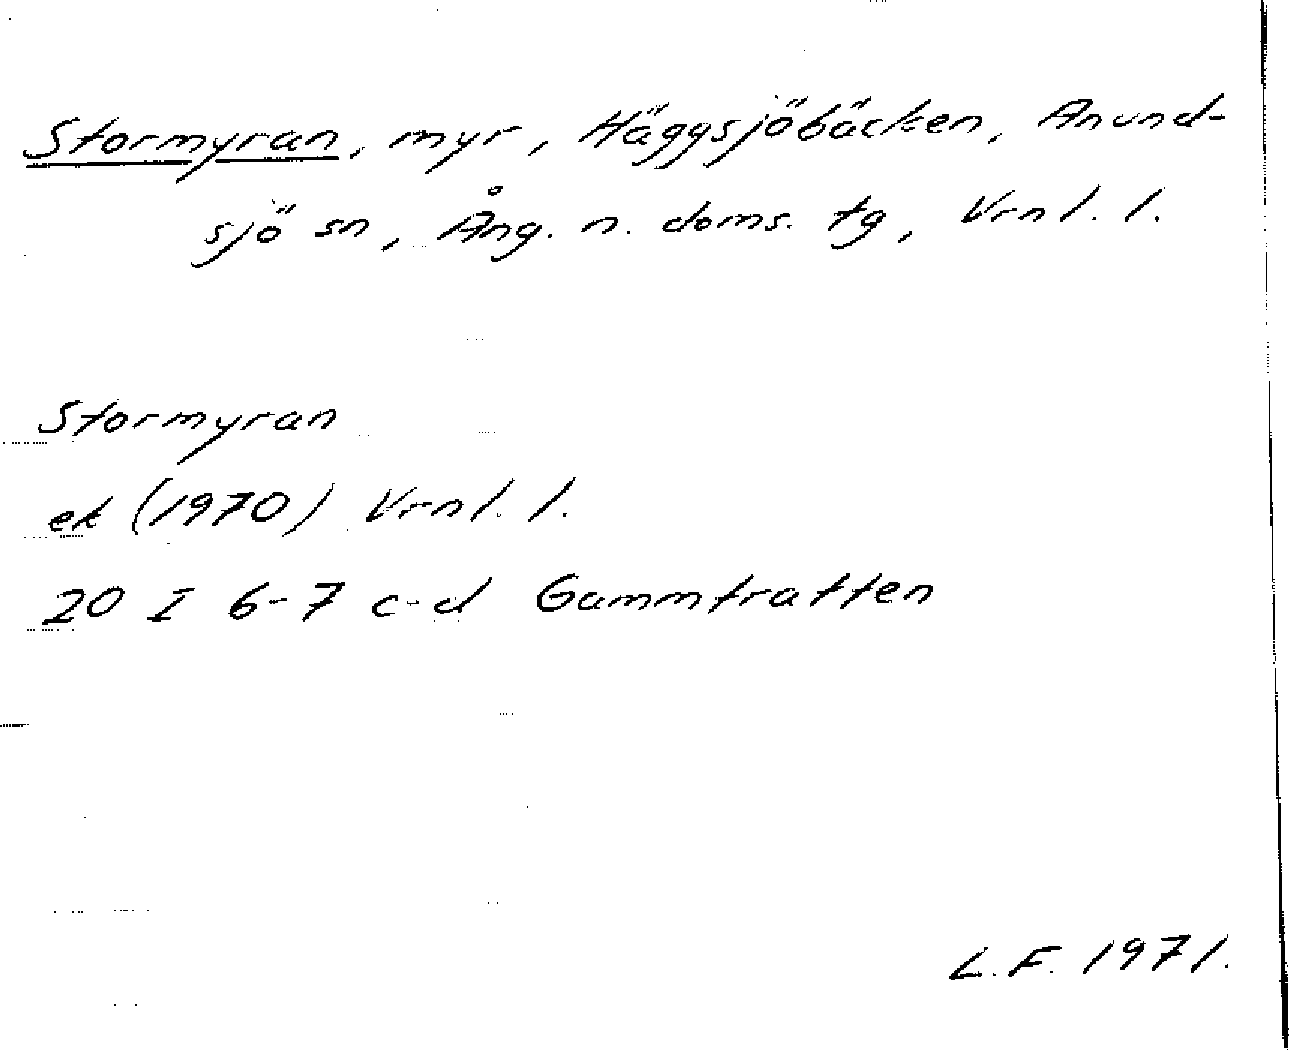 Stormyran, myr, Häggsjöbäcken, Anund-
sjö sn, Ång. n. doms. tg, Vrnl. l.
Stormyran
ek (1970) Vrnl. l.
20 I 6-7 c-d Gammtratten
L.F. 1971.